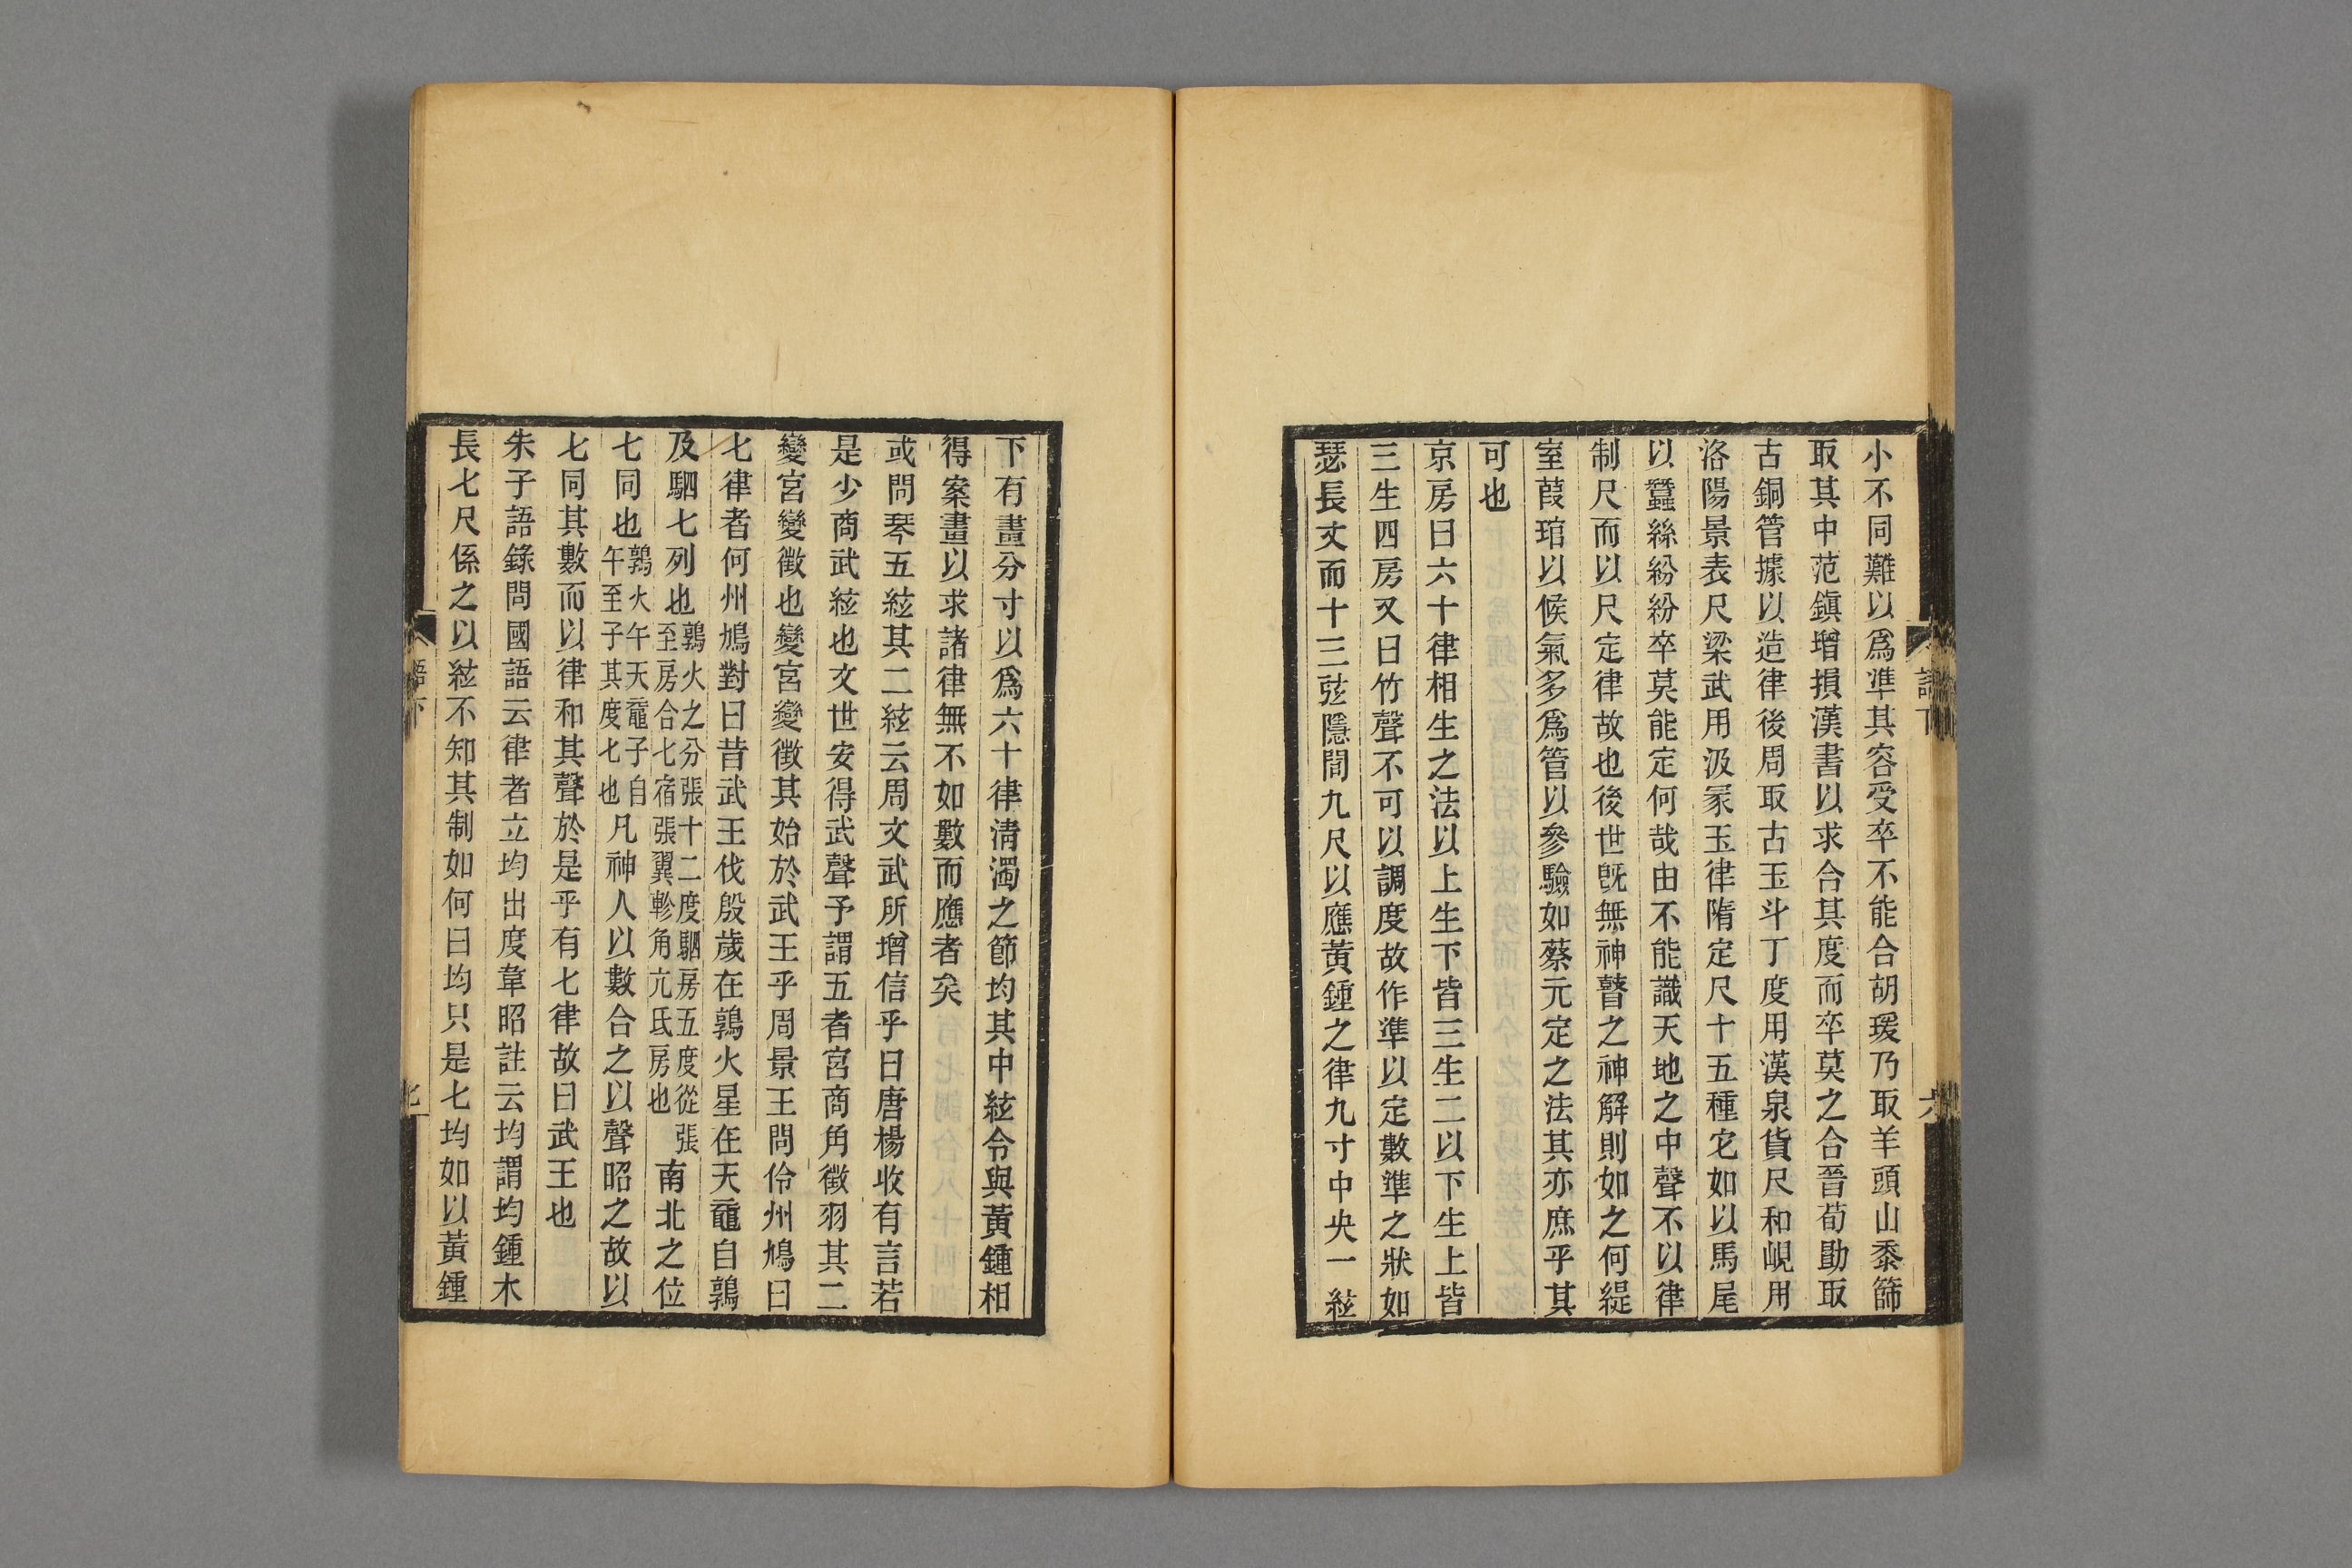 小不同難以爲準其容受卒不能合胡瑗乃取羊頭山黍篩
取其中范鎭增損漢書以求合其度而卒莫之合晉荀勖取
古銅管據以造律後周取古玉斗丁度用漢泉貨尺和峴用
洛陽景表尺梁武用汲冡玉律隋定尺十五種它如以馬尾
以蠶絲紛紛卒莫能定何哉由不能識天地之中聲不以律
制尺而以尺定律故也後世旣無神瞽之神解則如之何緹
室葭琯以候氣多爲管以參驗如蔡元定之法其亦庶乎其
可也
京房曰六十律相生之法以上生下皆三生二以下生上皆
三生四房又曰竹聲不可以調度故作準以定數準之狀如
瑟長丈而十三弦隱間九尺以應黃鍾之律九寸中央一絃
下有畫分寸以爲六十律淸濁之節均其中絃令與黃鍾相
得案畫以求諸律無不如數而應者矣
或問琴五絃其二絃云周文武所增信乎曰唐楊收有言若
是少商武絃也文世安得武聲予謂五者宮商角徵羽其二
變宮變徵也變宮變徵其始於武王乎周景王問伶州鳩曰
七律者何州鳩對曰昔武王伐殷歲在鶉火星在天黿自鶉
及駟七列也鶉火之分張十二度駟房五度從張至房合七宿張翼軫角亢氐房也南北之位
七同也鶉火午天黿子自午至子其度七也凡神人以數合之以聲昭之故以
七同其數而以律和其聲於是乎有七律故曰武王也
朱子語錄問國語云律者立均出度韋昭註云均謂均鍾木
長七尺係之以絃不知其制如何曰均只是七均如以黃鍾
語下
七